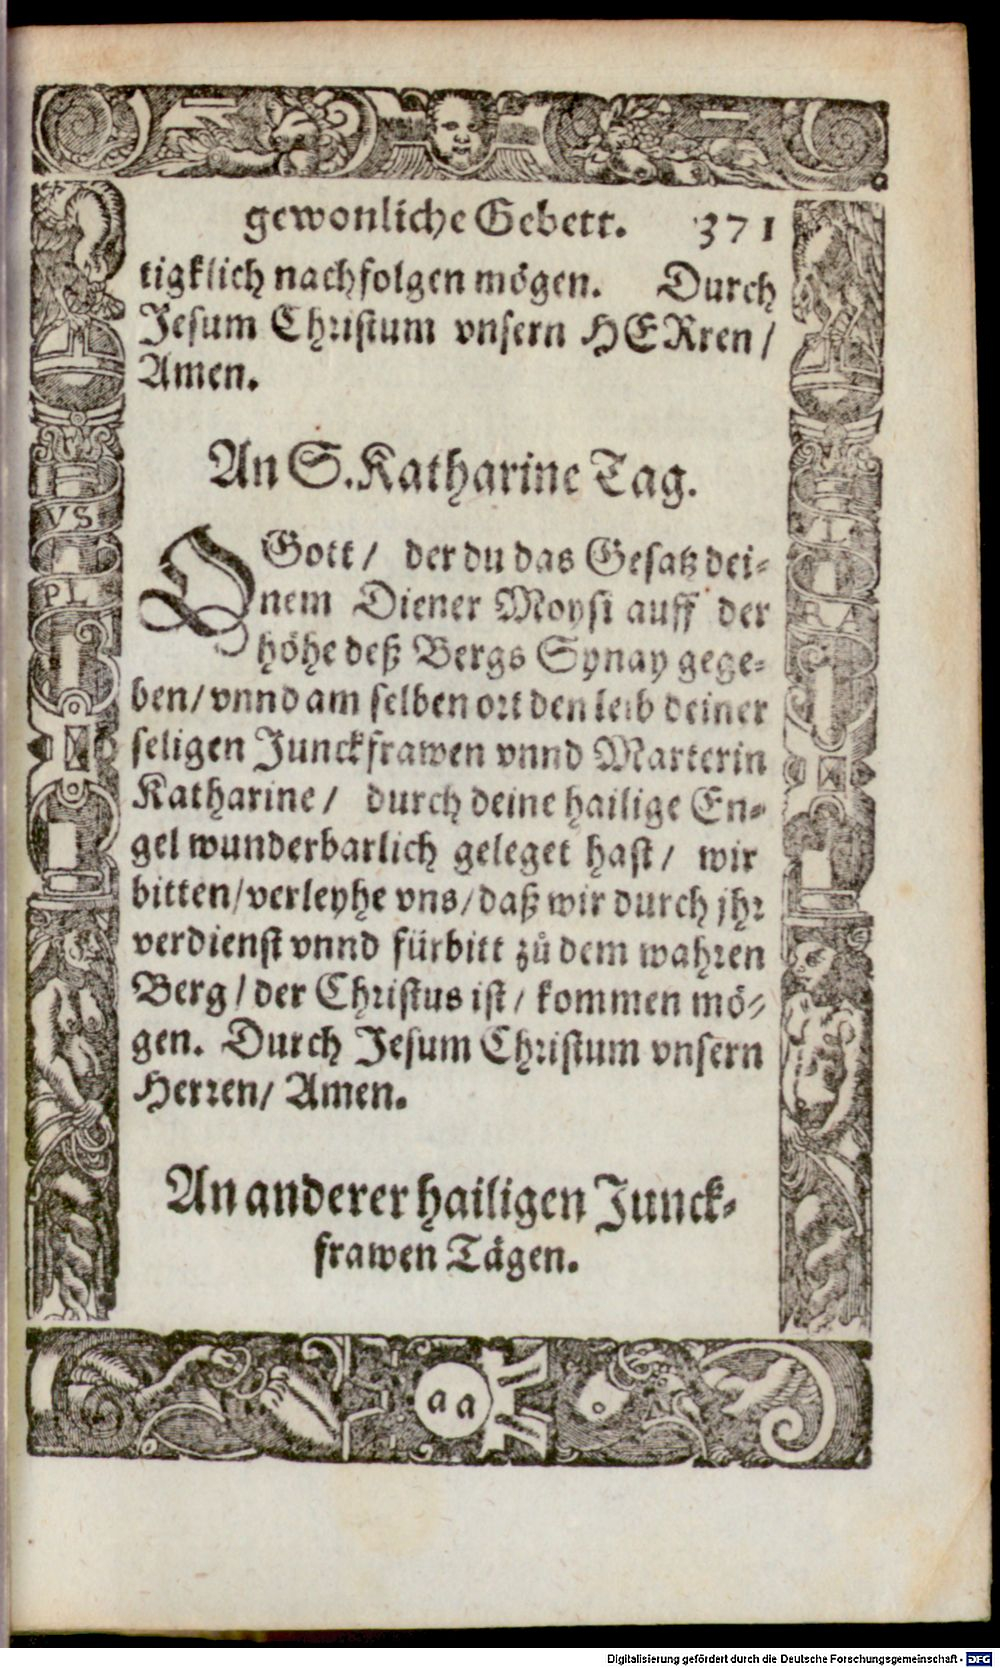 gewonliche Gebett. 371
tigklich nachfolgen mögen. Durch
Jesum Christum vnsern HERren /
Amen.
An S. Katharine Tag.
O Gott / der du das Gesatz dei-
nem Diener Moysi auff der
höhe deß Bergs Synay gege-
ben / vnnd am selben ort den leib deiner
seligen Junckfrawen vnnd Marterin
Katharine / durch deine hailige En-
gel wunderbarlich geleget hast / wir
bitten / verleyhe vns / daß wir durch jhr
verdienst vnnd fürbitt zů dem wahren
Berg / der Christus ist / kommen mö-
gen. Durch Jesum Christum vnsern
Herren / Amen.
An anderer hailigen Junck-
frawen Tägen.
VS
PL
RA
aa
Digitalisierung gefördert durch die Deutsche Forschungsgemeinschaft - DFG